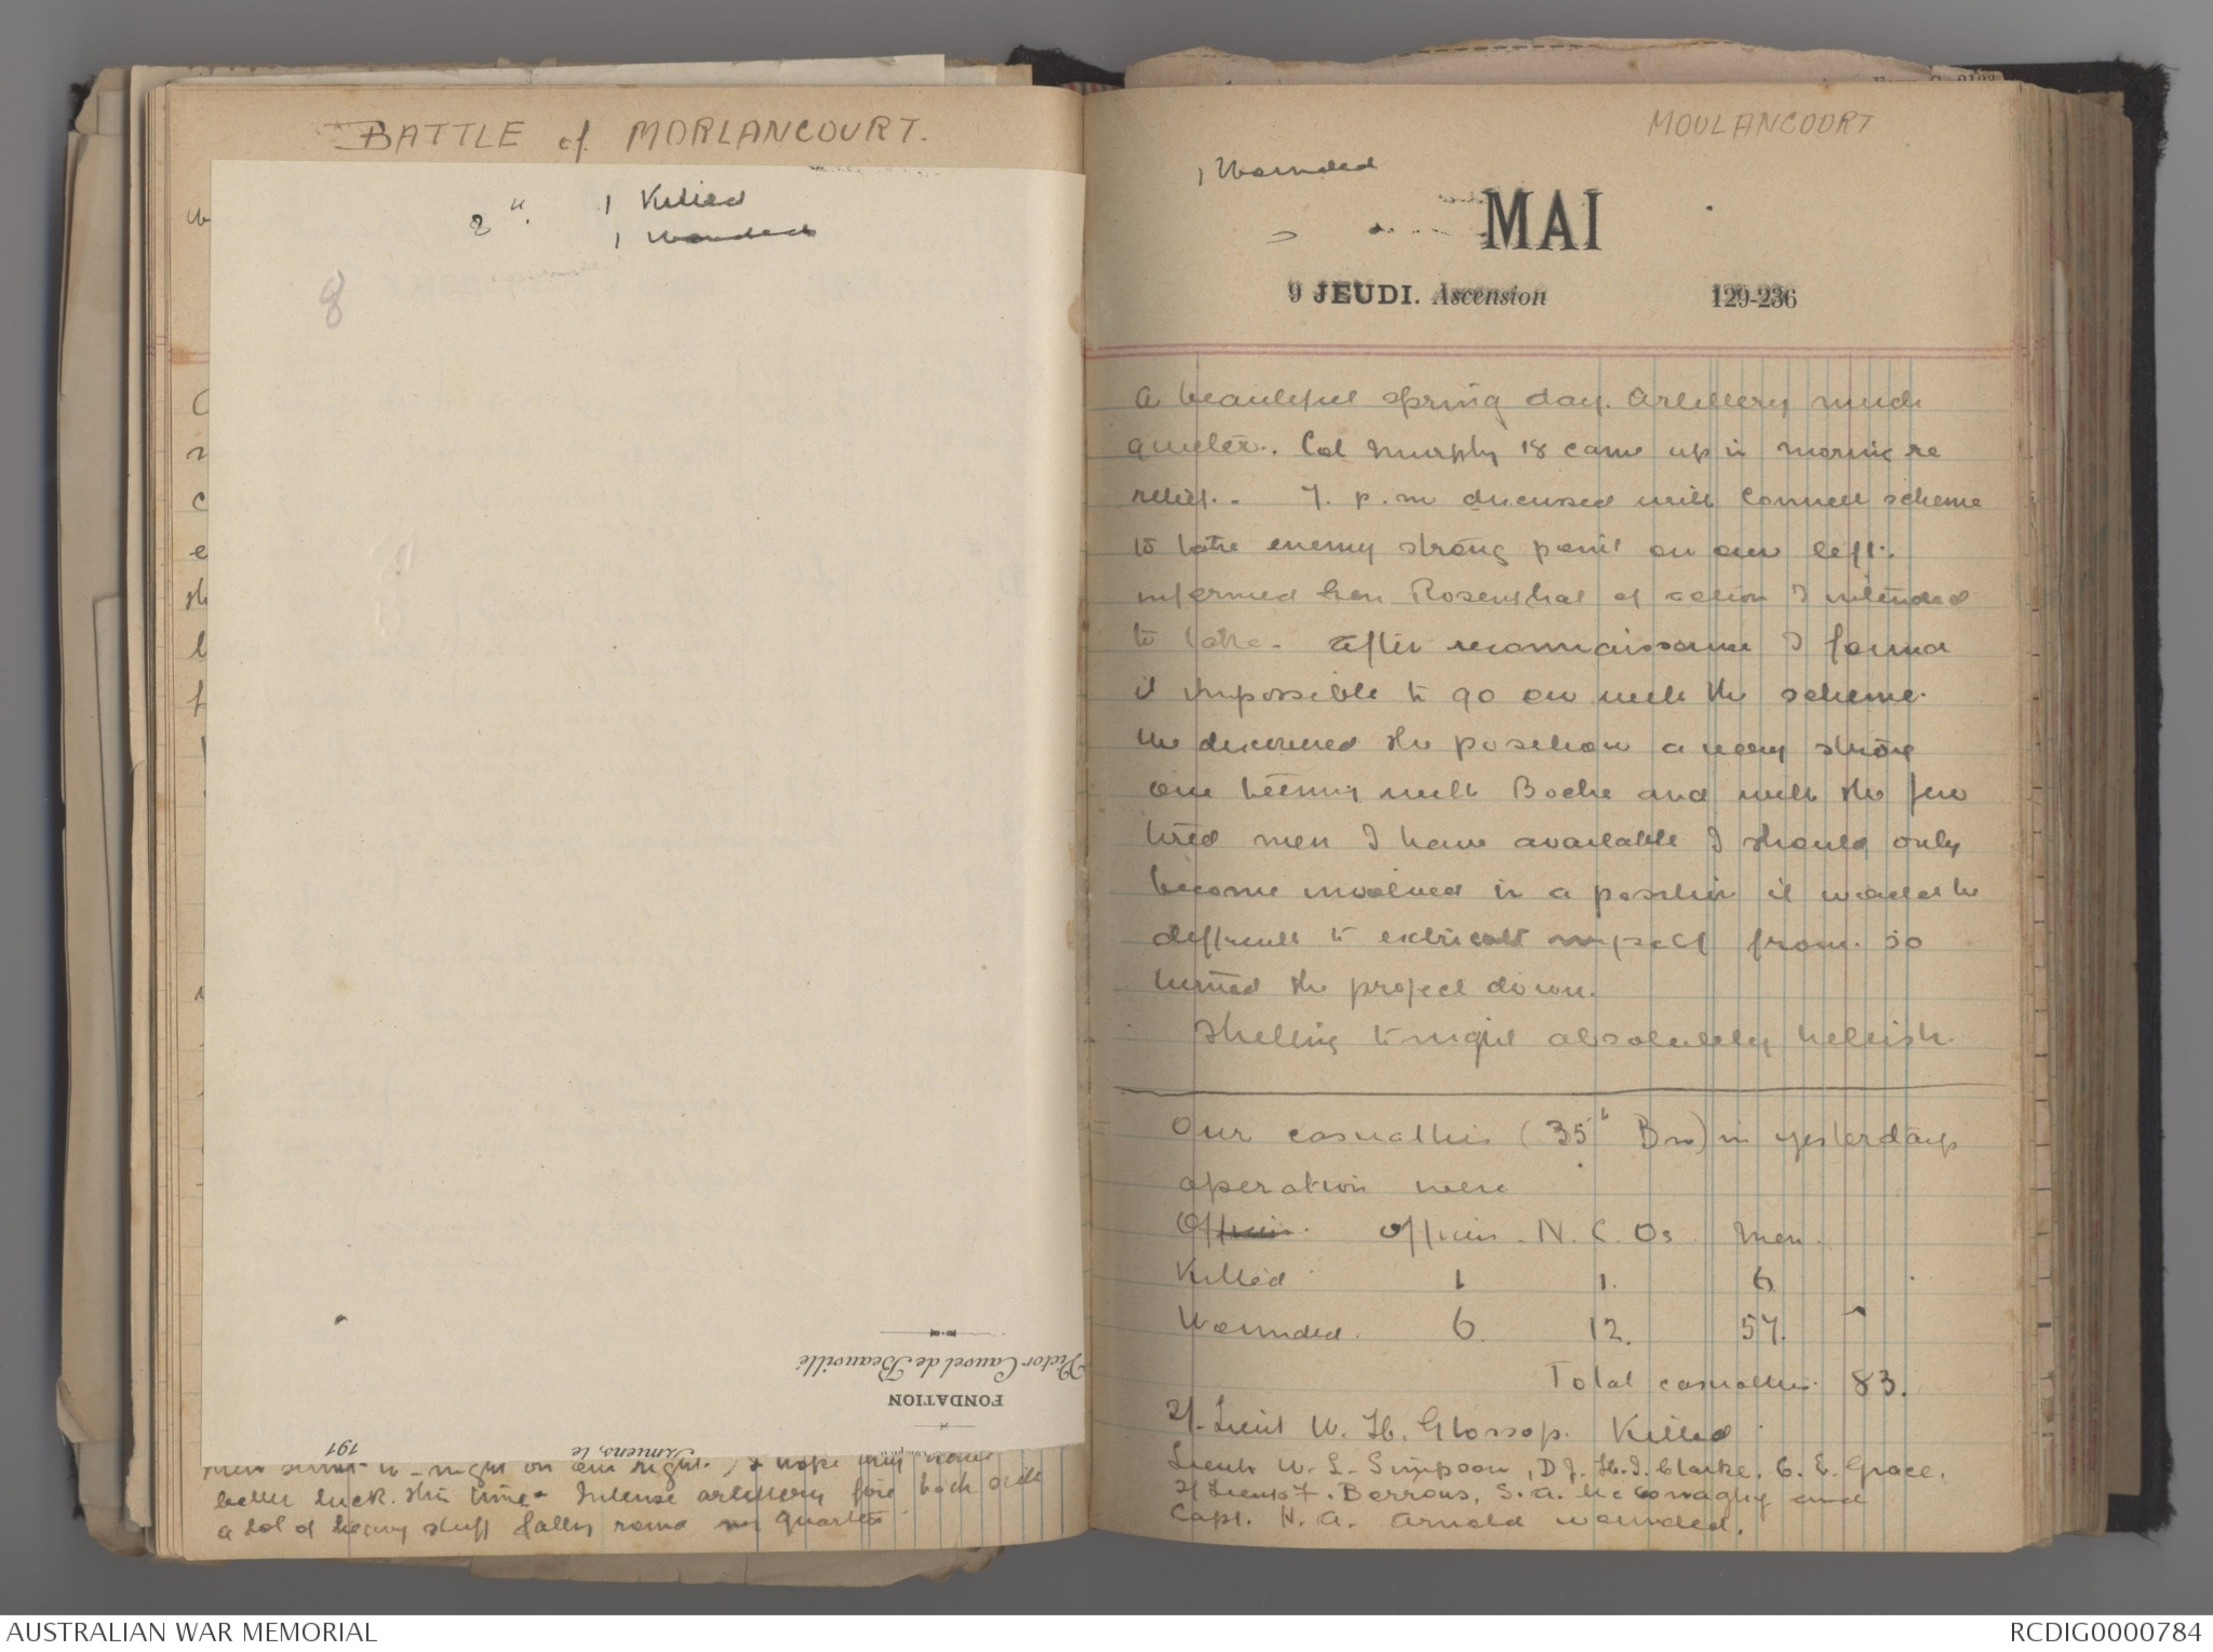 BATTLE of MORLANCOURT.
2 ". 1 Killed
1 Wounded
8
Victor Cauvel de Beauvillé
FONDATION
Amiens, le 191
stunt to-night on our right. I hope they have
better luck this time. Intense artillery fire both sides
a lot of heavy stuff falling round my quarters
MOULANCOURT
1 Wounded
MAI
9 JEUDI. Ascension 129-236
A beautiful spring day. Artillery much
quieter. Col Murphy 18 came up in morning re
relief. 7. p.m discussed with Connell scheme
to take enemy strong point on our left.
informed Gen Rosenthal of action I intended
to take. After reconnaissance I found
it impossible to go on with the scheme.
We discovered the position a very strong
one teeming with Boche and with the few
tired men I have available I should only
become involved in a position it would be
difficult to extricate myself from. so
turned the project down.
Shelling tonight absolutely hellish.
Our casualties (35th Bn) in yesterdays
operation were
Officers. Officers. N. C. Os. Men.
Killed 1 1. 6
Wounded. 6. 12. 57.
Total casualties. 83.
2/-Lieut W. H. Glossop. Killed
Lieuts W. L. Simpson, D J. H. J. Clarke, C. E. Grace.
2/Lieuts F. Berrous, S. A. McConaghy and
Capt. H. A. Arnold wounded.
AUSTRALIAN WAR MEMORIAL
RCDIG0000784